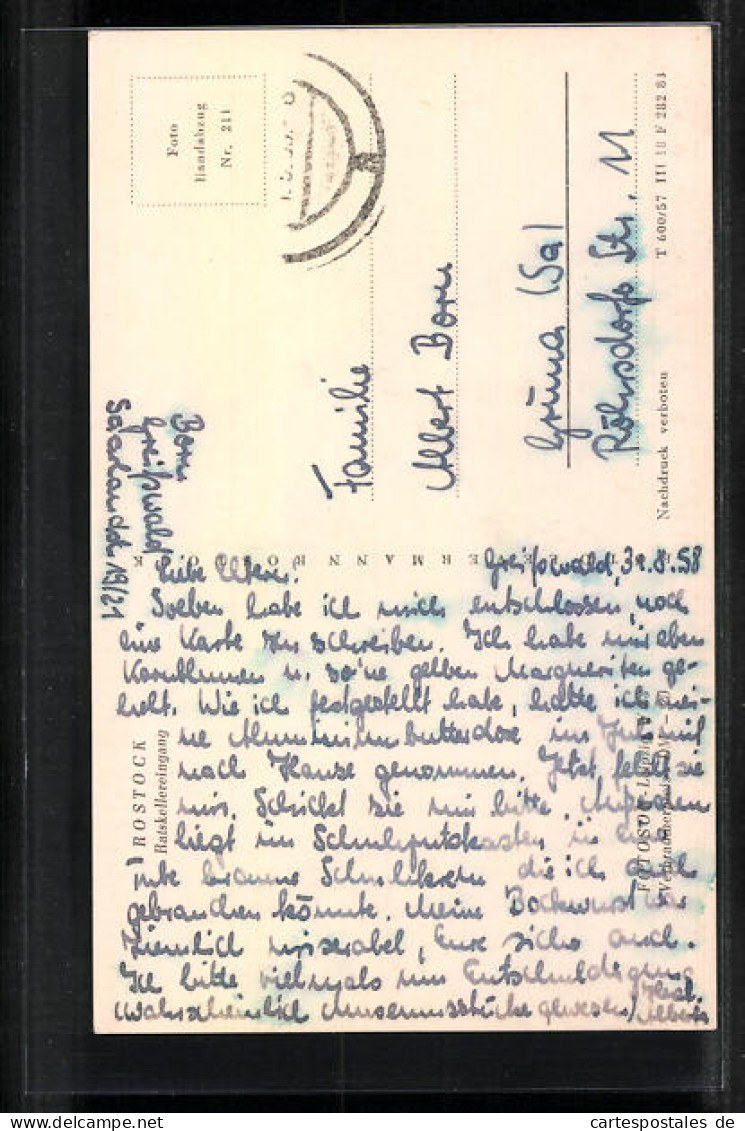 Foto
Handabzug
Nr. 211
Familie
Albert Born
Grüna (Sa)
Röhrsdorfs Str. 11
Nachdruck verboten T 600/57 III 18 F 282 83
Born
Greifswald
19/21
ROSTOCK
Ratskellereingang
Greifswald, 31.8.58
Liebe Eltern.
Soeben habe ich mich entschlossen noch
eine Karte zu schreiben. Ich habe mir eben
Kornblumen u. so'ne gelben Margueriten ge-
holt. Wie ich festgestellt habe, hatte ich mei-
ne Aluminiumbutterdose im Juli mit
nach Hause genommen. Jetzt fehlt sie
mir. Schickt sie mir bitte. Außerdem
liegt im Schuhputzkasten
gute braune die ich auch
gebrauchen könnte. Meine Bockwurst war
ziemlich miserabel, Eure sicher auch.
Ich bitte vielmals um Entschuldigung
Wahrscheinlich Museumsstücke gewesen!
Albert
cartespostales de